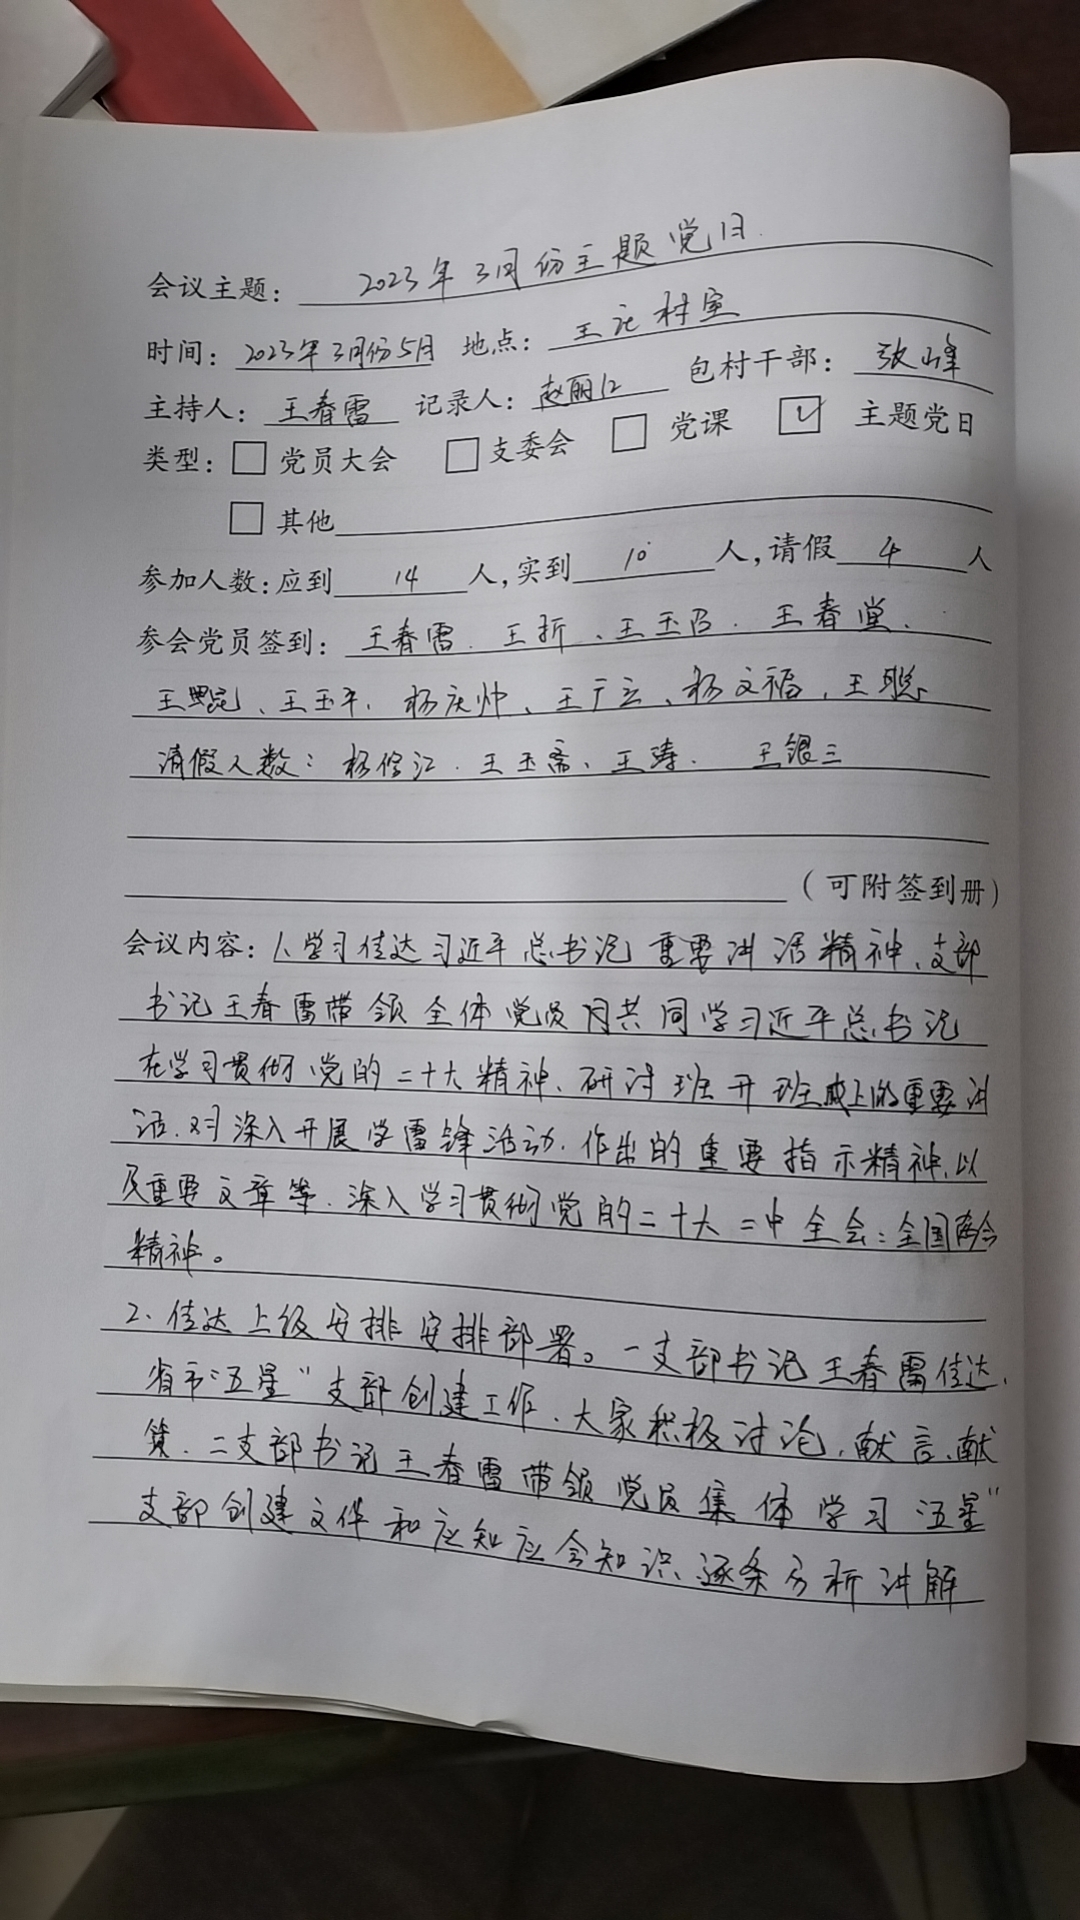 会议主题：2023年3月份主题党日
时间：2023年3月份5月 地点：王记村室
主持人：王春雷 记录人：赵丽江 包村干部：张峰
类型：□党员大会 □支委会 □党课 ☑主题党日
□其他
参加人数：应到 14 人，实到 10 人，请假 4 人
参会党员签到：王春雷、王折、王玉召、王春堂、
王昆、王玉平、杨庆帅、王广云、杨文福、王聪
请假人数：杨修江、王玉斋、王涛、王银三
（可附签到册）
会议内容：1、学习传达习近平总书记重要讲话精神、支部
书记王春雷带领全体党员同共同学习近平总书记
在学习贯彻党的二十大精神、研讨班开班式上的重要讲
话、对深入开展学雷锋活动、作出的重要指示精神、以
及重要文章等、深入学习贯彻党的二十大二中全会：全国两会
精神。
2、传达上级安排安排部署。一支部书记王春雷传达、
省市“五星”支部创建工作、大家积极讨论，献言、献
策、二支部书记王春雷带领党员集体学习“五星”
支部创建文件和应知应会知识、逐条分析讲解